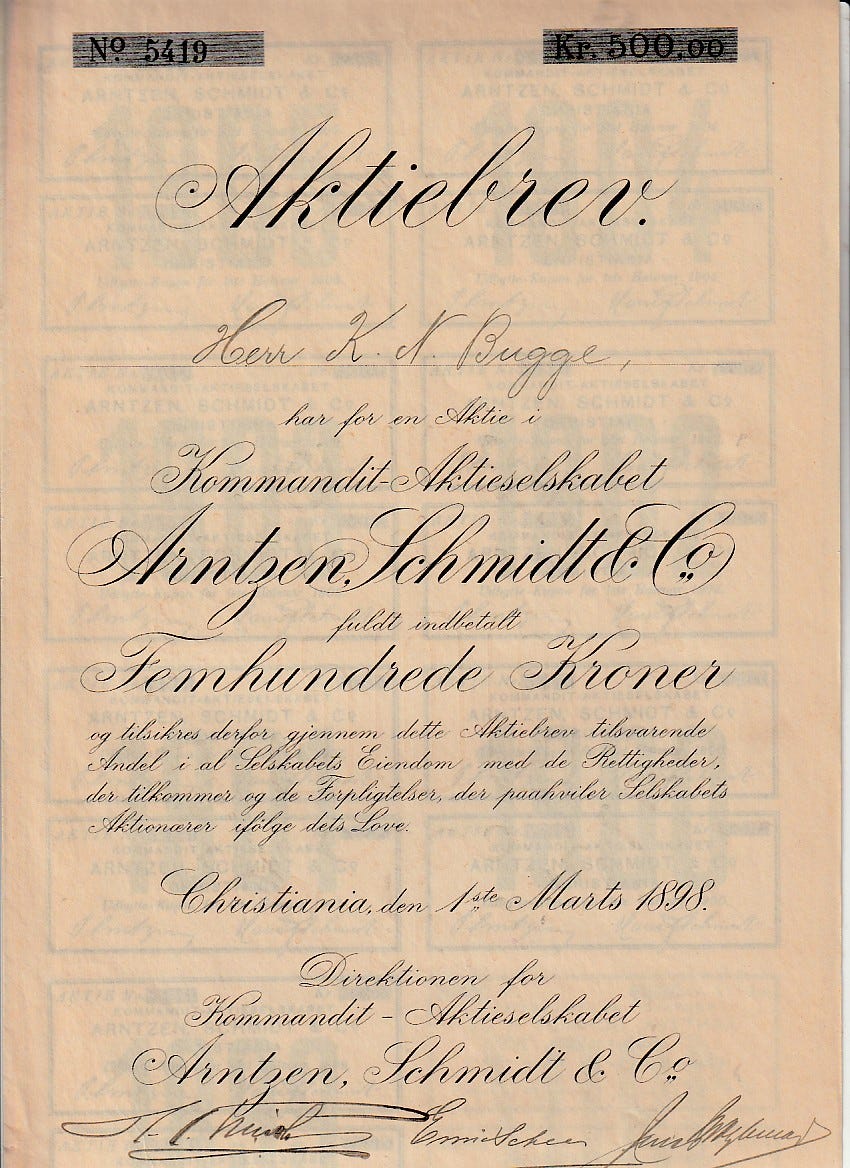 No 5419
Kr. 500,00
Aktiebrev.
Herr K. N. Bugge,
har for en Aktie i
Kommandit-Aktieselskabet
Arntzen, Schmidt & Co
fuldt indbetalt
Femhundrede Kroner
og tilsikres derfor gjennem dette Aktiebrev tilsvarende
Andel i al Selskabets Eiendom med de Rettigheder,
der tilkommer og de Forpligtelser, der paahviler Selskabets
Aktionærer ifölge dets Love.
Christiania, den 1ste Marts 1898.
Direktionen for
Kommandit - Aktieselskabet
Arntzen, Schmidt & Co